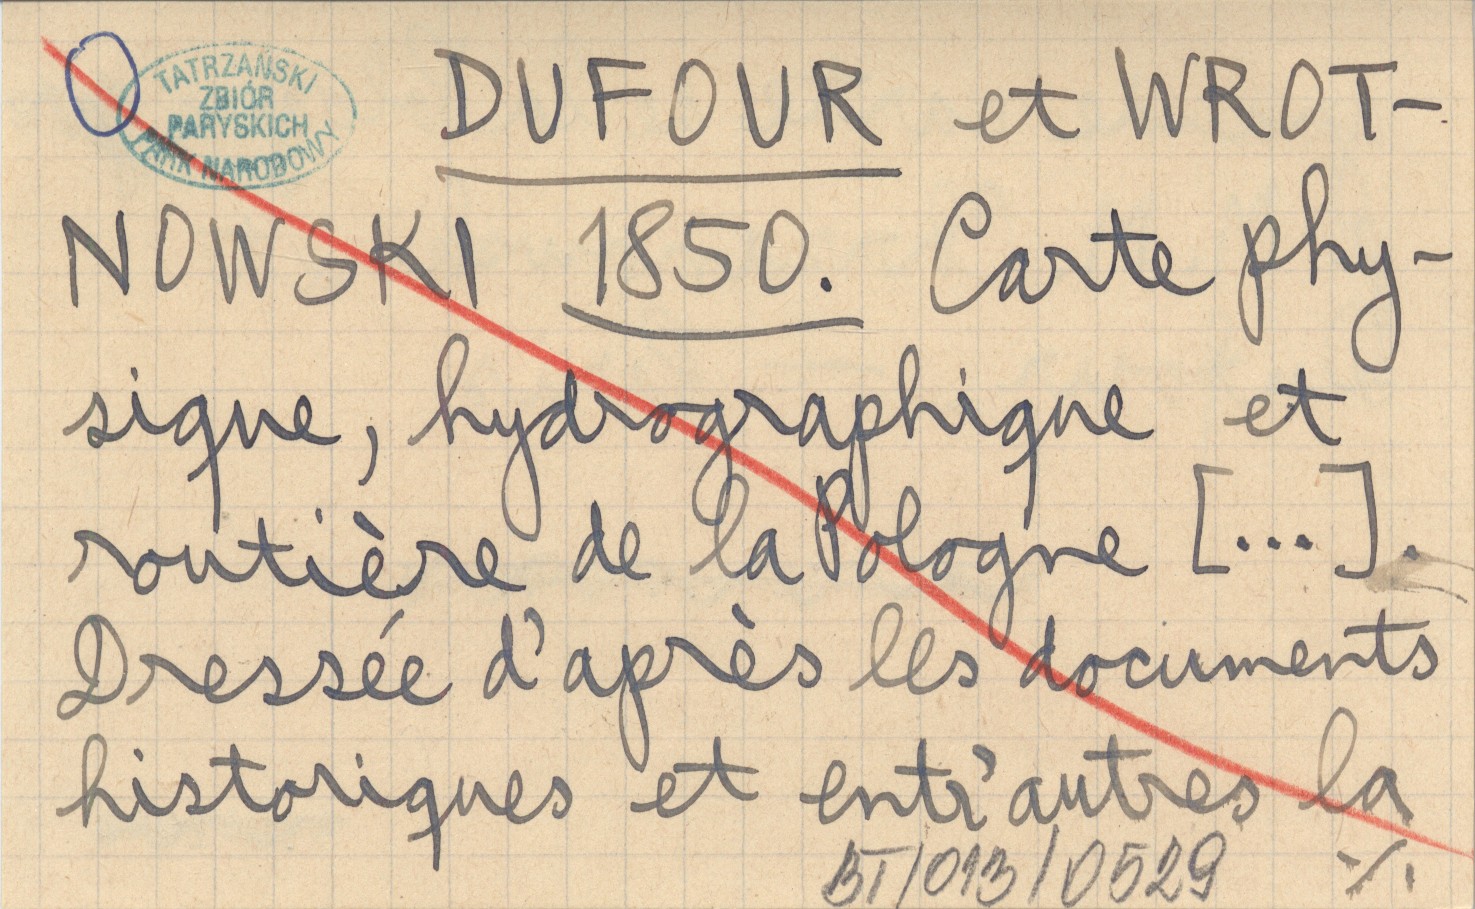 TATRZAŃSKI
ZBIÓR
PARYSKICH
PARK NARODOWY
DUFOUR et WROT-
NOWSKI 1850. Carte phy-
sique, hydrographique et
routière de la Pologne [...].
Dressée d'après les documents
historiques et entr'autres la
BT/013/0529 ./.